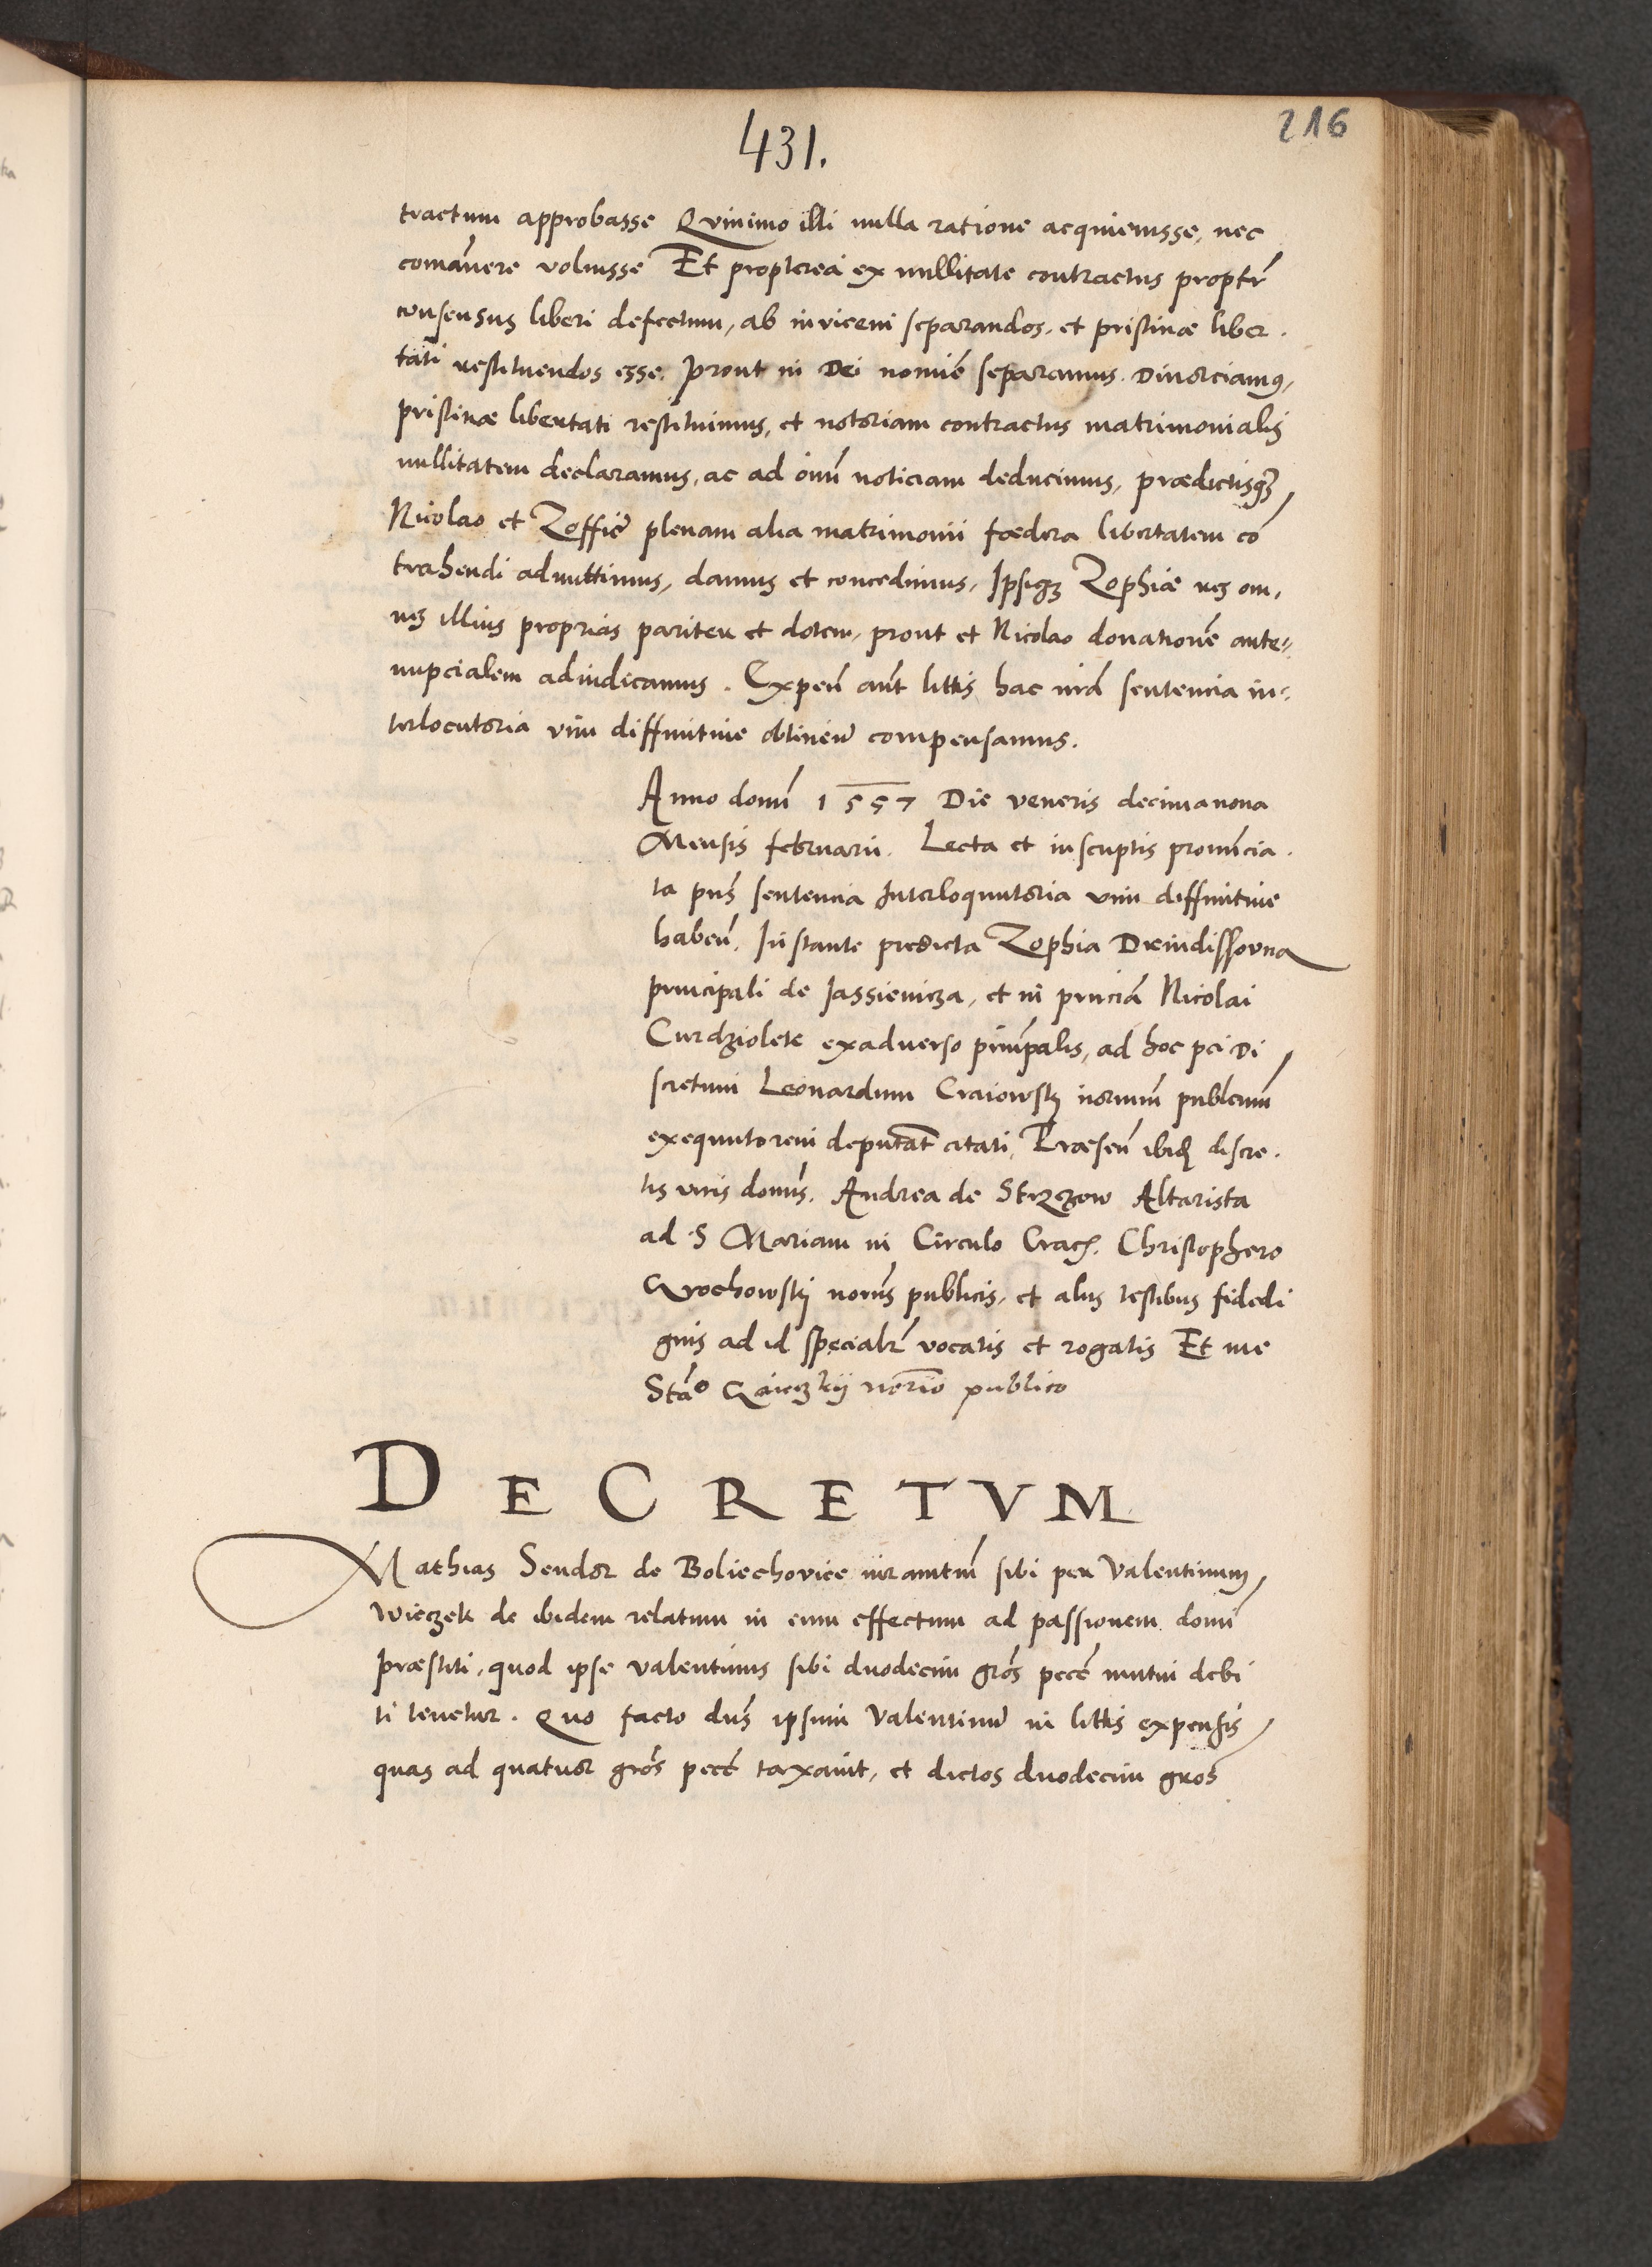 431.
216
tractum approbasse Quinimo illi nulla ratione acquieuisse, nec
comanere voluisse Et propterea ex nullitate contractus propter
consensus liberi defectum, ab inuicem separandos, et pristinæ liber.
tati restituendos esse. Prout in Dei nomie separamus. Diuorciamus,
pristinæ libertati restituimus, et notoriam contractus matrimonialis
nullitatem declaramus, ac ad oium noticiam deducimus, prædictisque
Nicolao et Zoffie plenam alia matrimonii fœdera libertatem co
trahendi admittimus, damus et concedimus, Ipsique Zophiæ res om,
nes illius proprias pariter et dotem, prout et Nicolao donatione ante=
nupcialem adiudicamus. Expen aut littis hac nra sentencia in=
terlocutoria vim diffinitiue obtinen compensamus.
Anno domi 1557 Die veneris decimanona
Mensis februarii. Lecta et in scriptis pronuncia.
ta pns sentencia Interloquutoria vim diffinitiue
haben. Instante predicta Zophia Drindissovna
principali de Jassienicza, et in pnciam Nicolai
Curdziolek exaduerso principalis, ad hoc per Di
scretum Leonardum Craiowsky norium publicum
exequutorem deputat citati. Præsen ibidem discre.
tis viris domis. Andrea de Strzezow Altarista
ad S Mariam in Circulo Crac. Christophero
Grochowsky noriis publicis, et aliis testibus fidedi
gnis ad id specialr vocatis et rogatis Et me
Stao norio publico
DECRETVM
Mathias Sendor de Boliechovice iuramtum sibi per Valentinum
Wieczek de ibidem relatum in eum effectum ad passionem domi
præstiti, quod ipse Valentinus sibi duodecim gros pece mutui debi
ti tenetur. Quo facto dns ipsum Valentinu in littis expensis
quas ad quatuor gros pece taxauit, et dictos duodecim gros